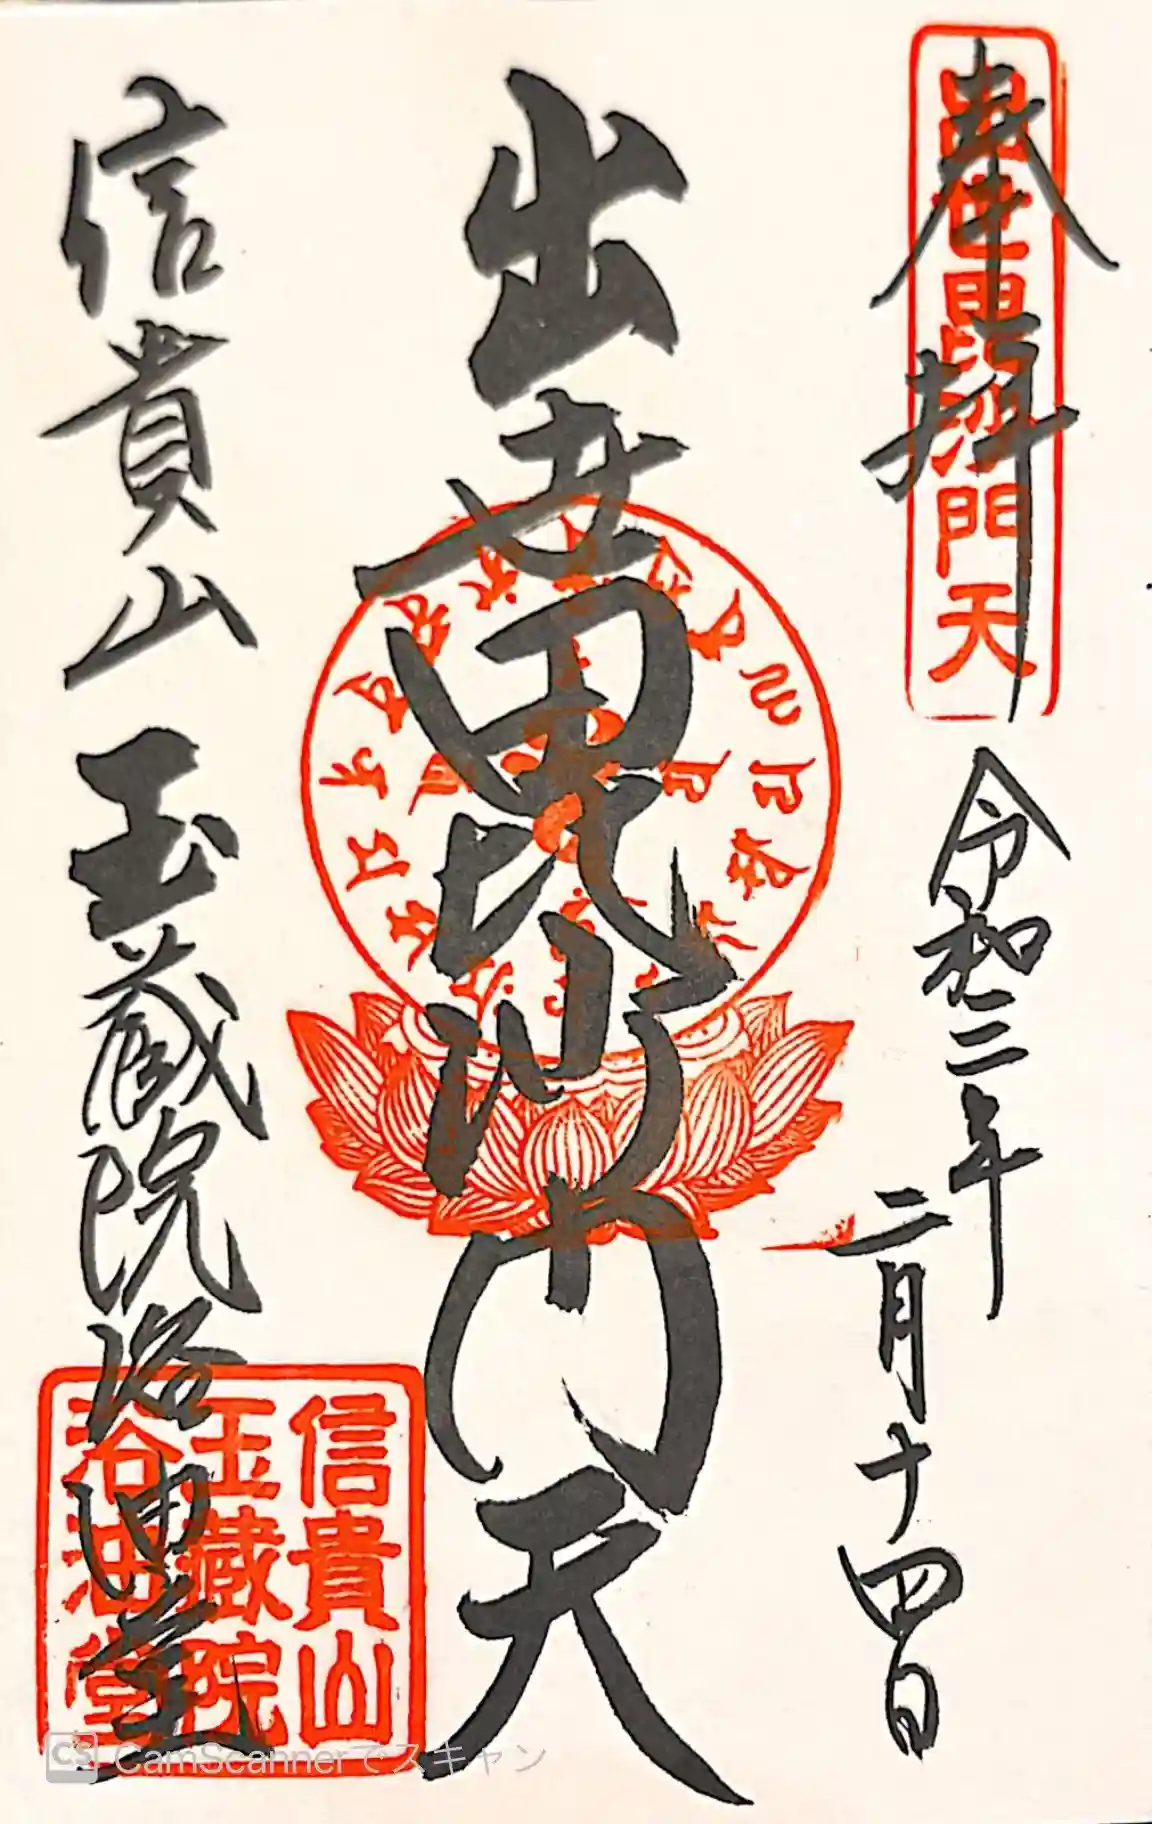 奉拝
出世毘沙門天
令和三年
二月十四日
出世毘沙門天
信貴山 玉蔵院浴油堂
信貴山
玉蔵院
浴油堂
CS CamScannerでスキャン